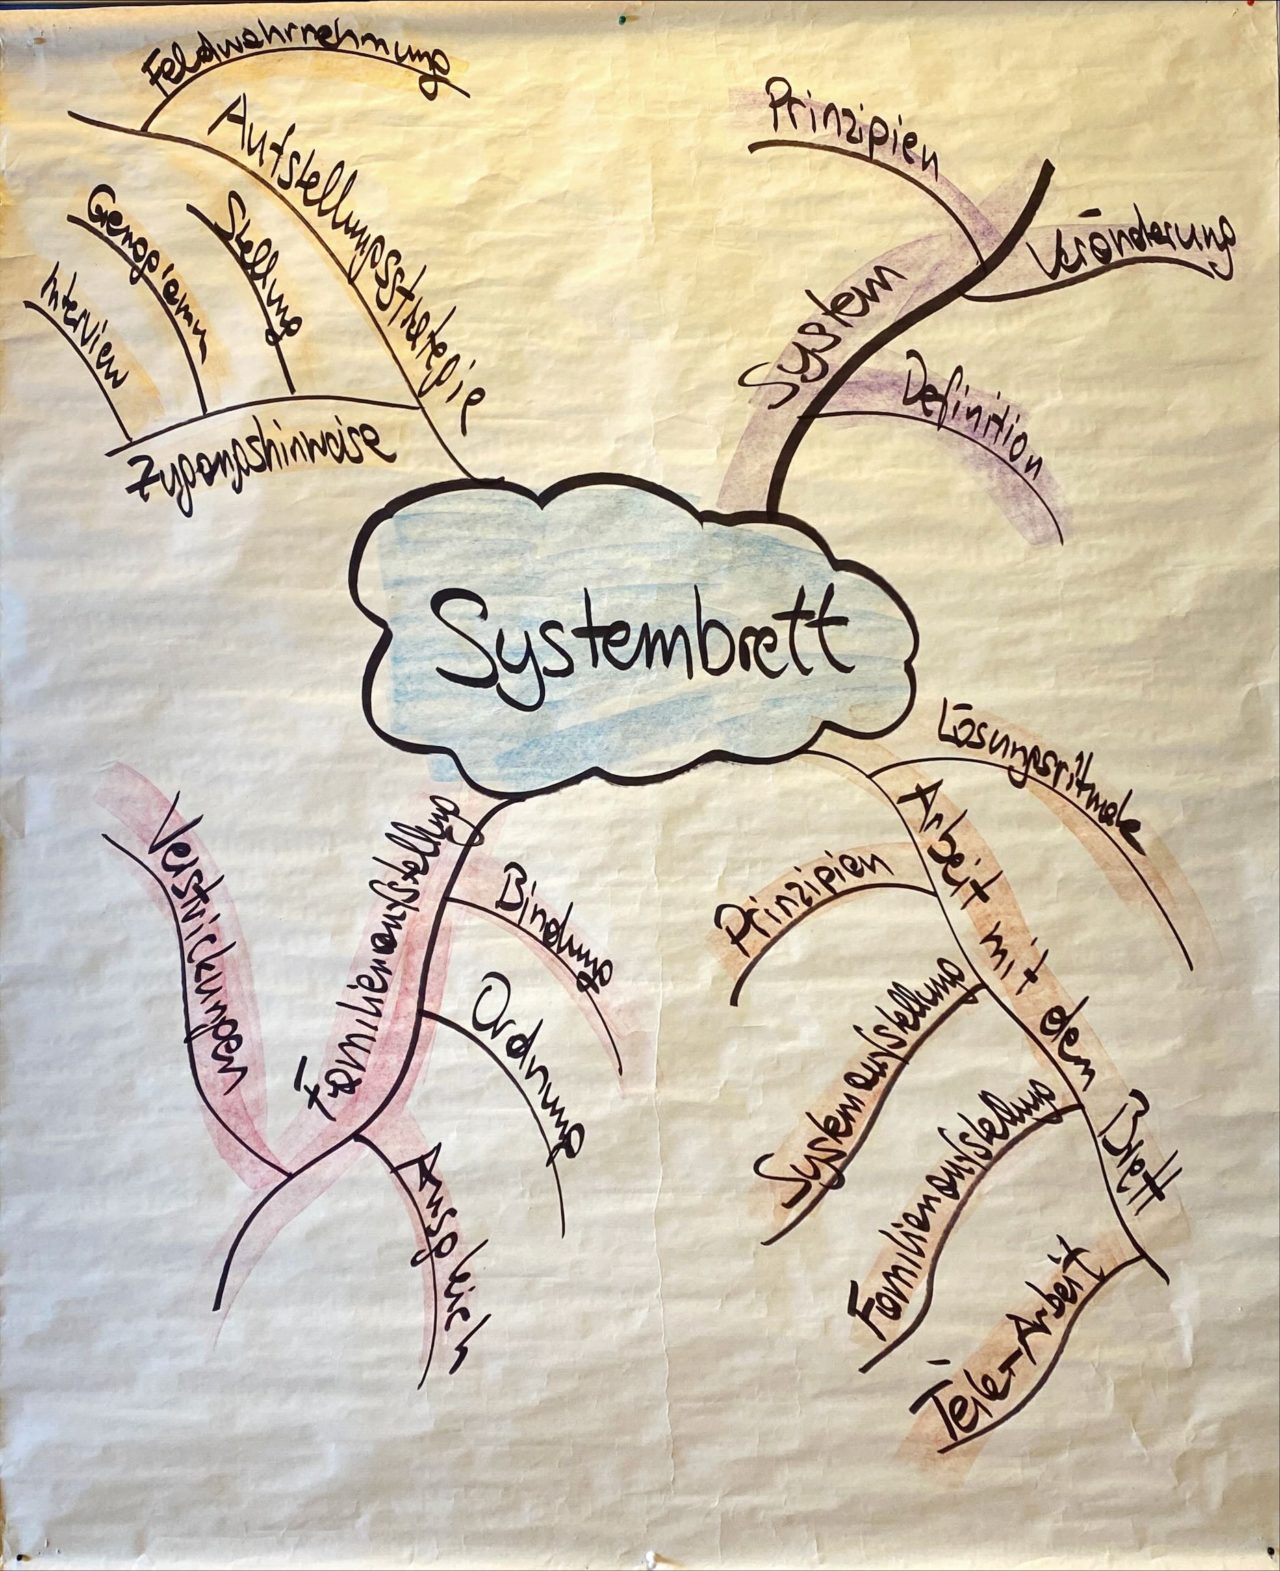 Feldwahrnehmung
Aufstellungsstrategie
Stellung
Genogramm
Interview
Zugangshinweise
Prinzipien
Veränderung
System
Definition
Systembrett
Lösungsrituale
Arbeit mit dem Brett
Prinzipien
Systemaufstellung
Familienaufstellung
Teile-Arbeit
Familienaufstellung
Bindung
Ordnung
Ausgleich
Verstrickungen